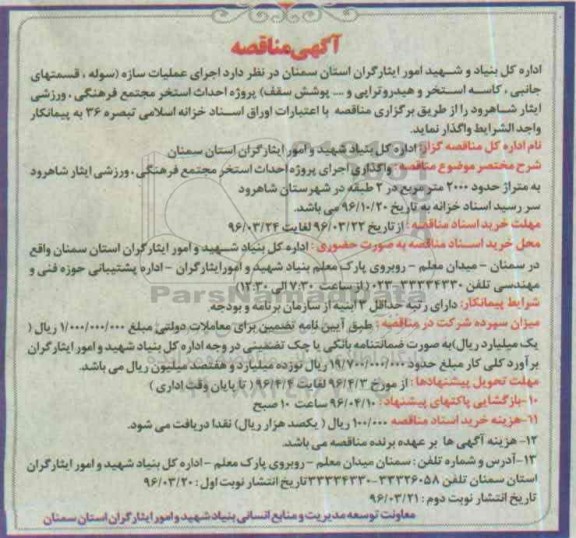 آگهی مناقصه
اداره کل بنیاد و شهید امور ایثارگران استان سمنان در نظر دارد اجرای عملیات سازه (سوله ، قسمتهای
جانبی ، کاسه استخر و هیدروتراپی و ... پوشش سقف) پروژه احداث استخر مجتمع فرهنگی ، ورزشی
ایثار شاهرود را از طریق برگزاری مناقصه با اعتبارات اوراق اسناد خزانه اسلامی تبصره ۳۶ به پیمانکار
واجد الشرایط واگذار نماید.
نام اداره کل مناقصه گزار: اداره کل بنیاد شهید و امور ایثارگران استان سمنان
شرح مختصر موضوع مناقصه: واگذاری اجرای پروژه احداث استخر مجتمع فرهنگی ، ورزشی ایثار شاهرود
به متراژ حدود ۲۰۰۰ متر مربع در ۲ طبقه در شهرستان شاهرود
سر رسید اسناد خزانه به تاریخ ۹۶/۱۰/۲۰ می باشد.
مهلت خرید اسناد مناقصه : از تاریخ ۹۶/۰۳/۲۲ لغایت ۹۶/۰۳/۲۴
محل خرید اسناد مناقصه به صورت حضوری : اداره کل بنیاد شهید و امور ایثارگران استان سمنان واقع
در سمنان - میدان معلم - روبروی پارک معلم بنیاد شهید و امور ایثارگران - اداره پشتیبانی حوزه فنی و
مهندسی تلفن ۳۳۳۳۴۳۳۰-۰۲۳ ( از ساعت ۷:۳۰ الی ۱۲:۳۰)
شرایط پیمانکار: دارای رتبه حداقل ۳ ابنیه از سازمان برنامه و بودجه.
میزان سپرده شرکت در مناقصه : طبق آیین نامه تضمین برای معاملات دولتی مبلغ ۱/۰۰۰/۰۰۰/۰۰۰ ریال (
یک میلیارد ریال) به صورت ضمانتنامه بانکی یا چک تضمینی در وجه اداره کل بنیاد شهید و امور ایثارگران
برآورد کلی کار مبلغ حدود ۱۹/۷۰۰/۰۰۰/۰۰۰ ریال نوزده میلیارد و هفتصد میلیون ریال می باشد.
مهلت تحویل پیشنهادها : از مورخ ۹۶/۴/۳ لغایت ۹۶/۴/۴ ( تا پایان وقت اداری )
۱۰-بازگشایی پاکتهای پیشنهاد : ۹۶/۰۴/۱۰ ساعت ۱۰ صبح
۱۱-هزینه خرید اسناد مناقصه ۱۰۰/۰۰۰ ریال ( یکصد هزار ریال) نقدا دریافت می شود.
۱۲- هزینه آگهی ها بر عهده برنده مناقصه می باشد.
۱۳-آدرس و شماره تلفن : سمنان میدان معلم - روبروی پارک معلم - اداره کل بنیاد شهید و امور ایثارگران
استان سمنان تلفن ۳۳۳۲۶۰۵۸-۳۳۳۳۴۳۳۰ تاریخ انتشار نوبت اول : ۹۶/۰۳/۲۰
تاریخ انتشار نوبت دوم : ۹۶/۰۳/۲۱
معاونت توسعه مدیریت و منابع انسانی بنیاد شهید و امور ایثارگران استان سمنان